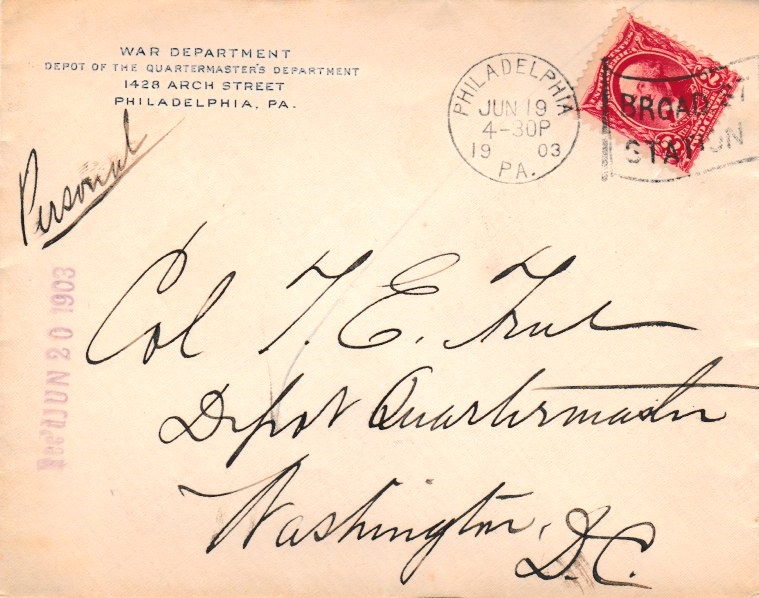 WAR DEPARTMENT
DEPOT OF THE QUARTERMASTER'S DEPARTMENT
1428 ARCH STREET
PHILADELPHIA, PA.
PHILADELPHIA
JUN 19
4-30P
19 03
PA.
BROAD ST
STATION
Personal
Rec'd JUN 20 1903
Col T. E. True
Depot Quartermaster
Washington,
D.C.